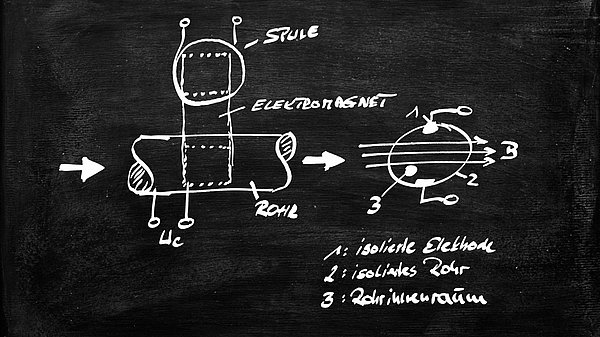 SPULE
ELEKTROMAGNET
1
B
2
3
ROHR
Uc
1: isolierte Elektrode
2: isoliertes Rohr
3: Rohrinnenraum